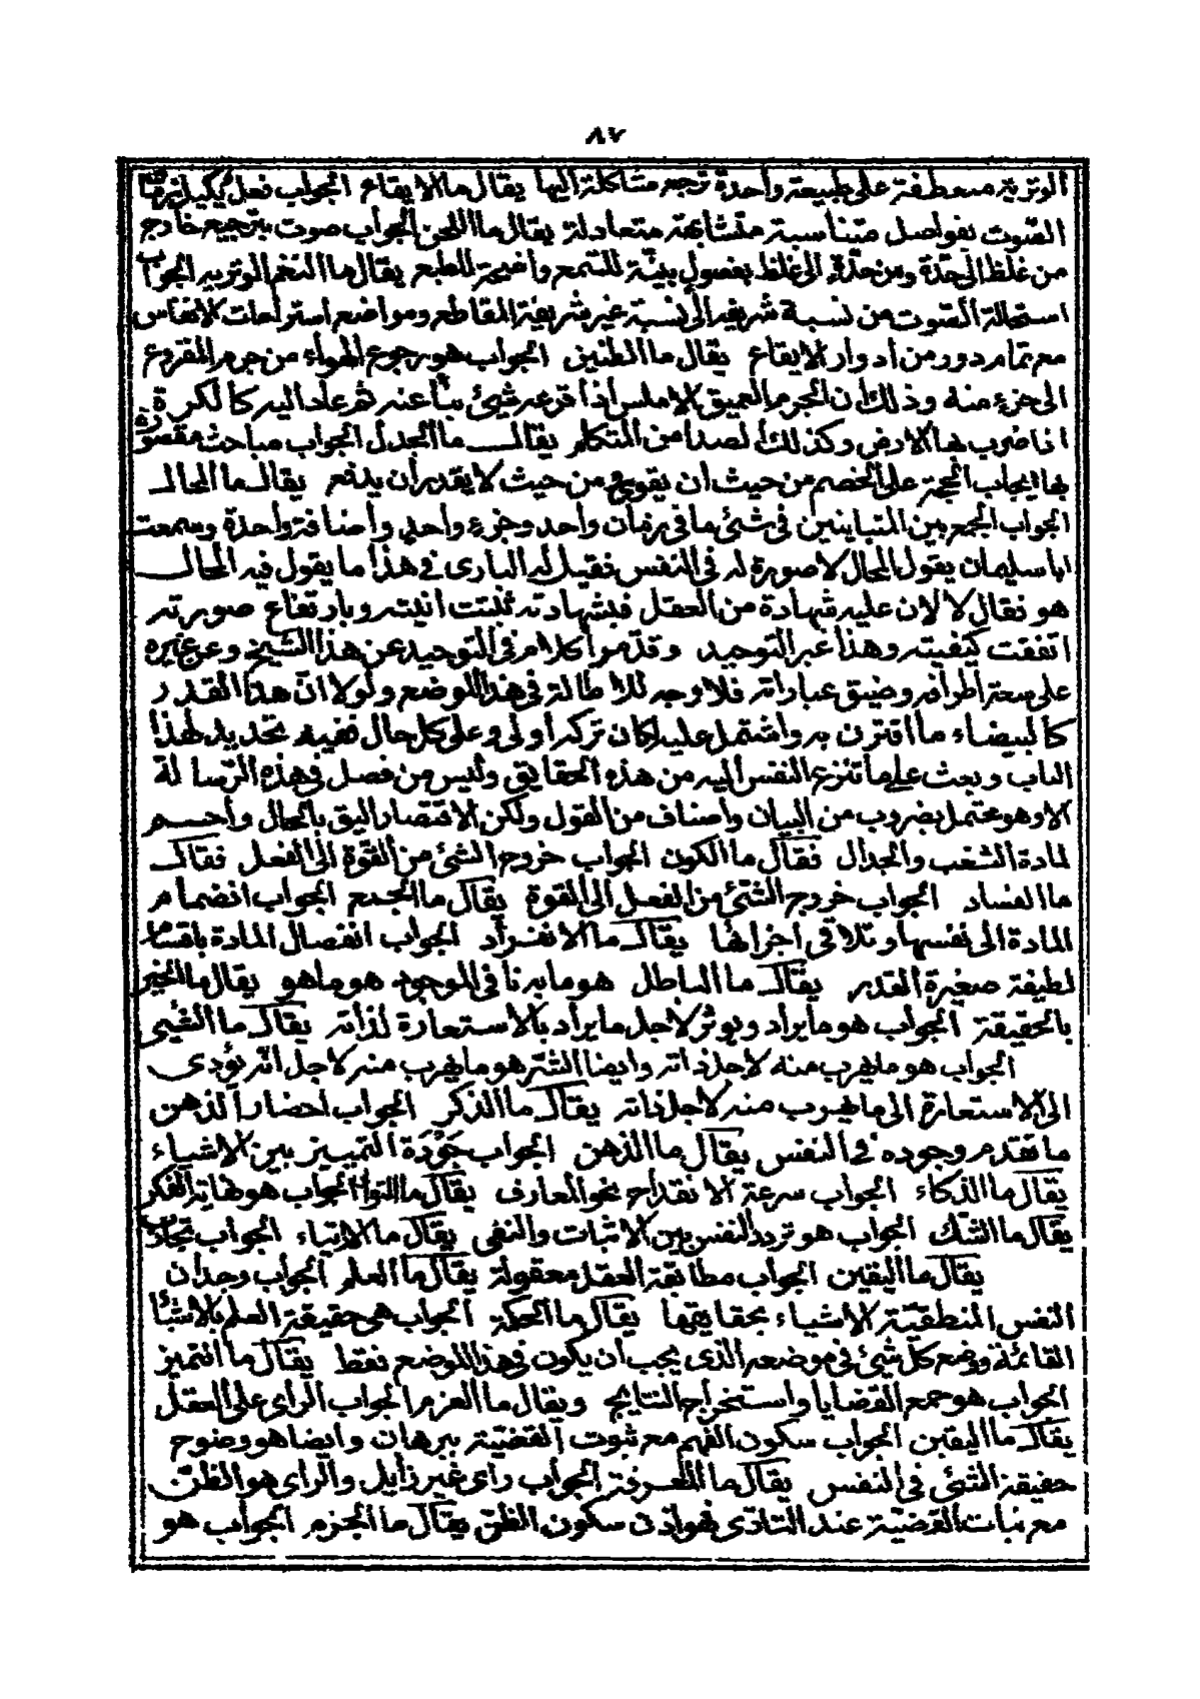 ٨٧
الوترية منعطفة على طبيعة واحدة ترجع مشاكلة اليها يقال ما الايقاع الجواب فعل يكيل زمان
الصّوت بفواصل متناسبة متشابهة متعادلة يقال ما اللحن الجواب صوت بترجيع خارج
من غلظ الى حدّة ومن حدّة الى غلظ بفصول بينّة للسّمع واضحة للطبع يقال ما النغم الوتريه الجواب
استحالة الصّوت من نسبة شريفه الى نسبة غير شريفة المقاطع ومواضع استراحات الانفاس
مع تمام دور من ادوار الايقاع يقال ما الطنين الجواب هو رجوع الهواء من جرم المقروع
الى جزء منه وذلك ان الجرم العميق الاملس اذا قرعه شئ نبأ عنه ثم عاد اليه كالكرة
اذا ضرب بها الارض وكذلك الصدا من المتكلم يقال ما الجدل الجواب مباحث مقصودة
بها ايجاب الحجة على الخصم من حيث ان يقوى ومن حيث لا يقدر ان يدفع يقال ما المحال
الجواب الجمع بين المتباينين فى شئ ما فى زمان واحد وجزء واحد واضافة واحدة وسمعت
ابا سليمان يقول المحال لا صورة له فى النفس فقيل له البارى فى هذا ما يقول فيه المحال
هو فقال لا لان عليه شهادة من العقل فبشهادته ثبتت انيته وبارتفاع صورته
انتفت كيفيته وهذا غير التوحيد وقد مر كلام فى التوحيد عن هذا الشيخ وعن غيره
على سعة اطرافه وضيق عباراته فلا وجه للاطالة فى هذا الموضع ولولا انّ هذا القدر
كالبيضاء ما اقترن به واشتمل عليه لكان تركه اولى وعلى كل حال ففيه تحديد لهذا
الباب وبحث على ما تنزع النفس اليه من هذه الحقايق وليس من فصل فى هذه الرسالة
الا وهو محتمل بضروب من البيان واصناف من القول ولكن الاقتصار اليق بالحال واحسم
لمادة الشغب والجدال فقال ما الكون الجواب خروج الشئ من القوة الى الفعل فقال
ما الفساد الجواب خروج الشئ من الفعل الى القوة يقال ما الجمع الجواب انضمام
المادة الى نفسها وتلاقى اجزائها يقال ما الانفراد الجواب انفصال المادة باقسام
لطيفة صغيرة القدر يقال ما الباطل هو ما به نافى الموجود هو ما هو يقال ما الخير
بالحقيقة الجواب هو ما يراد ويوثر لاجل ما يراد بالاستعارة لذاته يقال ما الشئ
الجواب هو ما يهرب منه لاجل ذاته وايضا الشر هو ما يهرب منه لاجل انّه يؤدى
الى الاستعارة الى ما يهرب منه لاجل ذاته يقال ما الذكر الجواب احضار الذهن
ما تقدم وجوده فى النفس يقال ما الذهن الجواب جَوْدَة التمييز بين الاشياء
يقال ما الذكاء الجواب سرعة الانقداح نحو المعارف يقال ما الجواب هو نهاية الفكر
يقال ما الشك الجواب هو تردد النفس بين الاثبات والنفى يقال ما الجواب تجاذب
يقال ما اليقين الجواب مطابقة العقل معقولة يقال ما العلم الجواب وجدان
النفس المنطقيّة الاشياء بحقايقها يقال ما الحكمة الجواب هى حقيقة العلم بالاشياء
القائمة ووضع كل شئ فى موضعه الذى يجب ان يكون فى هذا الموضع فقط يقال ما التميز
الجواب هو جمع القضايا واستخراج النتايج ويقال ما العزم الجواب الراى على العقل
يقال ما اليقين الجواب سكون الفهم مع ثبوت القضيّة ببرهان وايضا هو وضوح
حقيقة الشئ فى النفس يقال ما المعرفة الجواب راى غير زايل والراى هو الظنّ
مع ثبات القضيّة عند التادى فهو اذن سكون الظن يقال ما الجزم الجواب هو